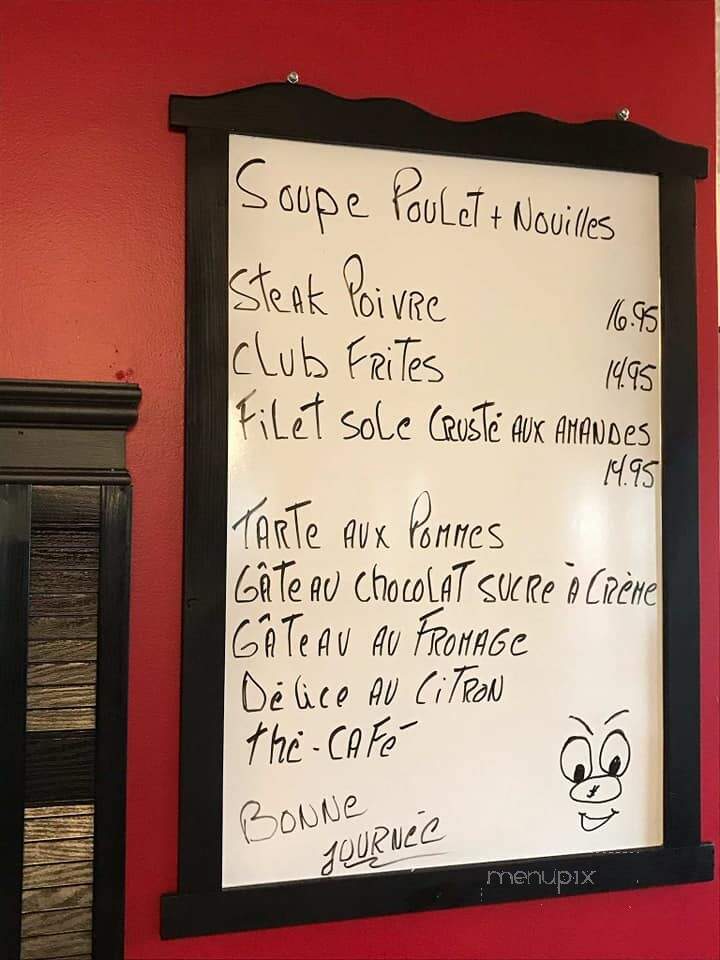 Soupe Poulet + Nouilles
Steak Poivre 16.95
Club Frites 14.95
Filet sole Crusté aux amandes
14.95
Tarte aux Pommes
Gâteau chocolat sucre à Crème
Gâteau au Fromage
Délice au Citron
thé - Café
Bonne
journée
menupix